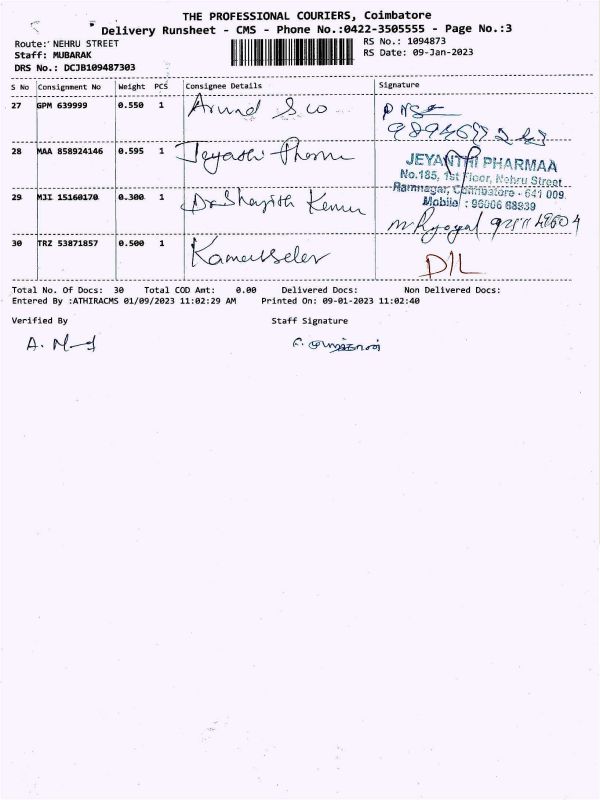 THE PROFESSIONAL COURIERS, Coimbatore
Delivery Runsheet - CMS - Phone No.:0422-3505555 - Page No.:3
Route: NEHRU STREET
RS No.: 1094873
Staff: MUBARAK
RS Date: 09-Jan-2023
DRS No.: DCJB109487303
S No Consignment No Weight PCS Consignee Details Signature
27 GPM 639999 0.550 1 Arund & co
28 MAA 858924146 0.595 1
JEYANTHI PHARMAA
No.185, 1st Floor, Nehru Street
Ramnagar, Coimbatore - 641 009.
Mobile : 96006 68939
29 MJI 15160170 0.300 1
30 TRZ 53871857 0.500 1 D/L
Total No. Of Docs: 30 Total COD Amt: 0.00 Delivered Docs: Non Delivered Docs:
Entered By :ATHIRACMS 01/09/2023 11:02:29 AM Printed On: 09-01-2023 11:02:40
Verified By Staff Signature